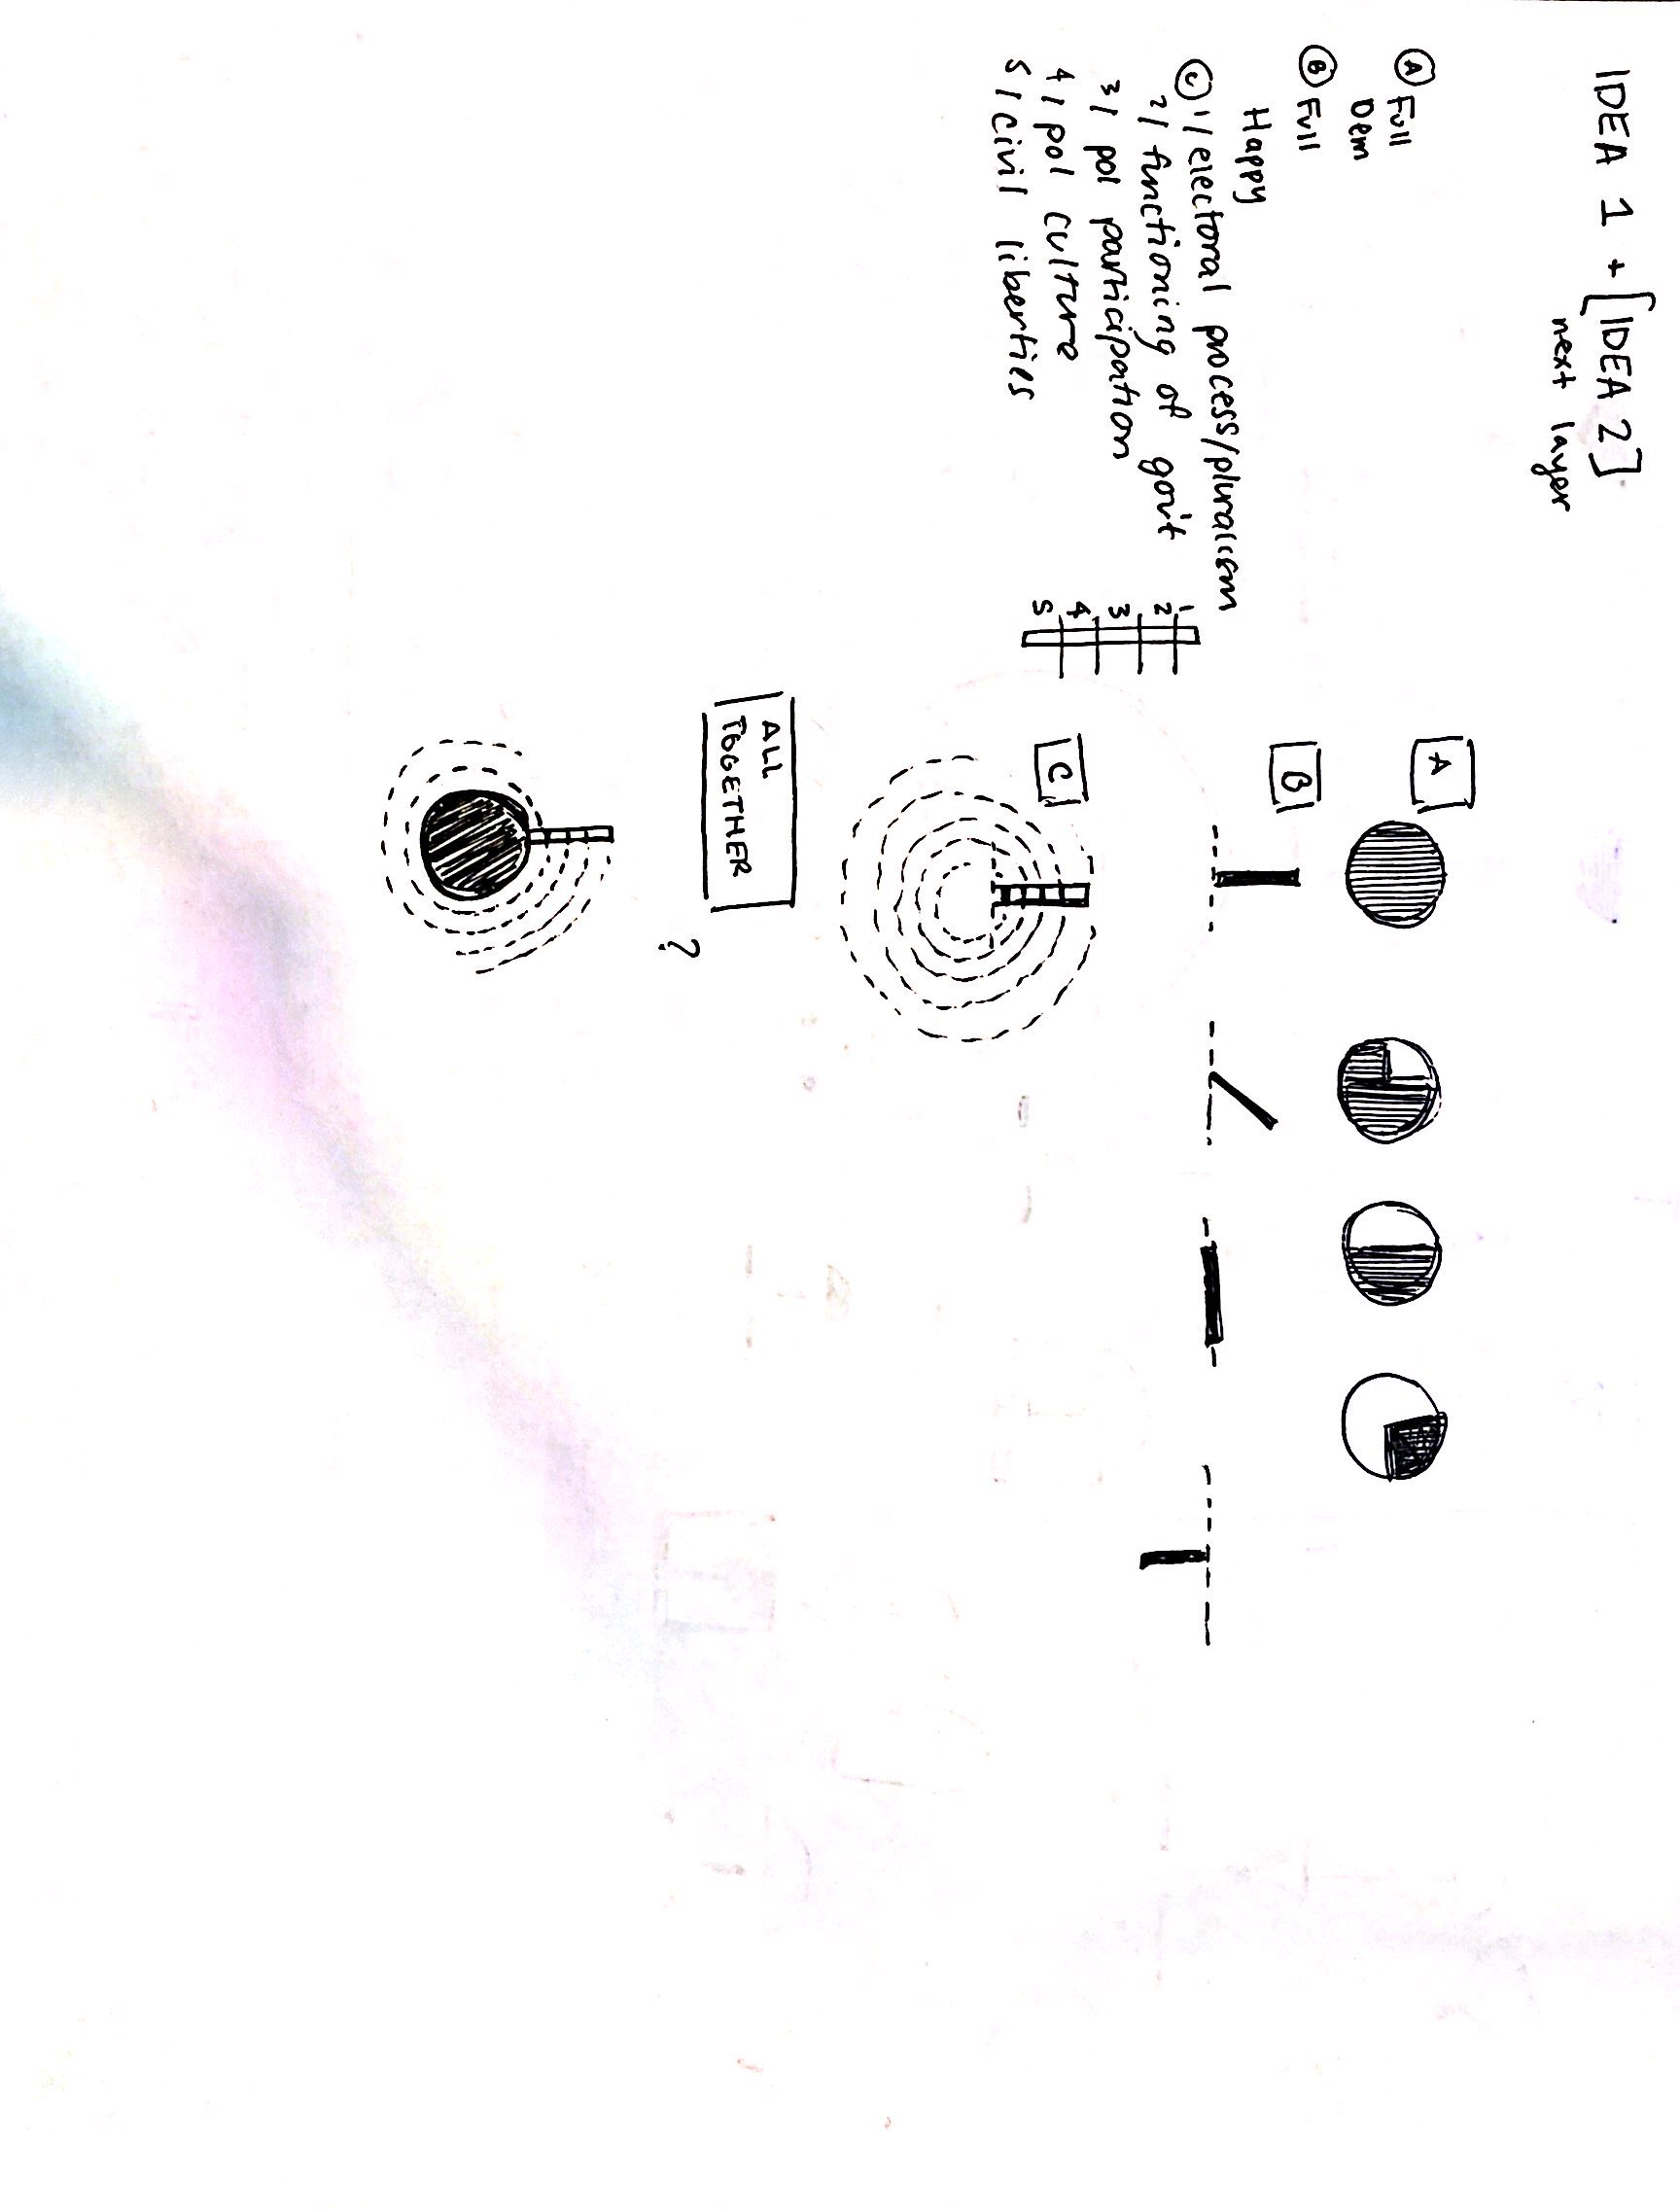 IDEA 1 + [IDEA 2]
next layer
A Full
Dem
B Full
Happy
C 1/ electoral process/pluralism
2/ functioning of gov't
3/ pol participation
4/ pol culture
5/ civil liberties
1
2
3
4
5
A
B
C
ALL
TOGETHER
?